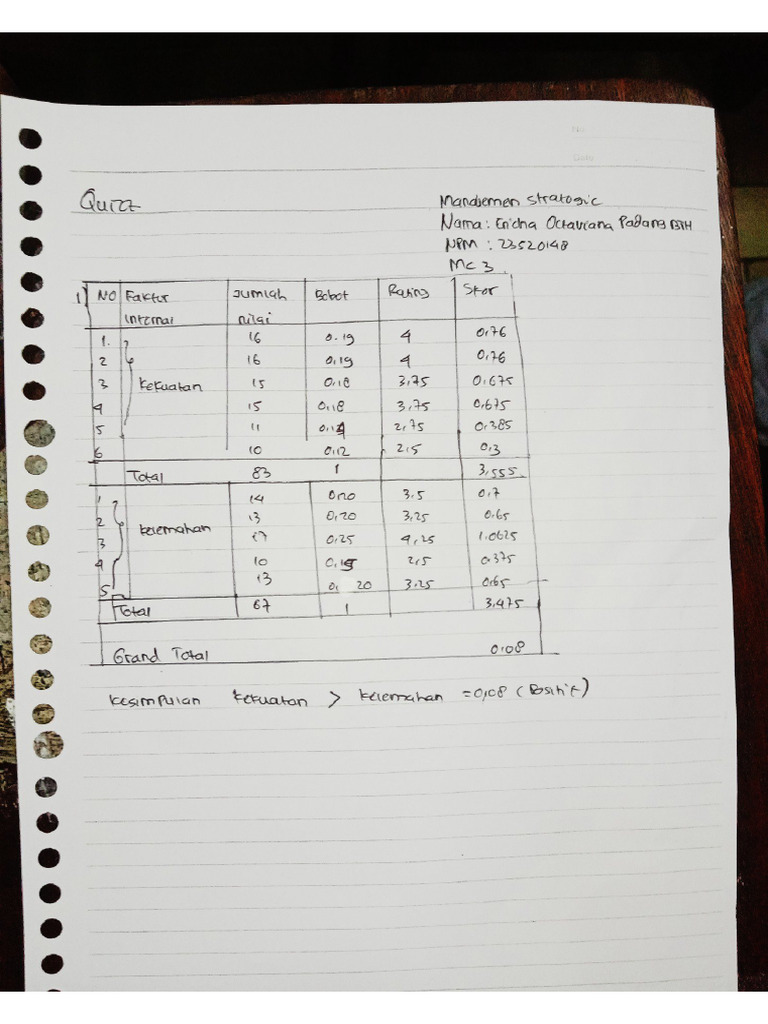 Quiz
Manajemen Strategic
Nama : Ericha Octaviana Padang BTH
NPM : 23520148
MC 3
1) NO Faktor Internal Jumlah nilai Bobot Rating Skor
1. 16 0.19 4 0,76
2 16 0,19 4 0,76
3 Kekuatan 15 0,18 3,75 0,675
4 15 0,18 3,75 0,675
5 11 0,14 2,75 0,385
6 10 0,12 2,5 0,3
Total 83 1 3,555
1 14 0,20 3.5 0,7
2 13 0,20 3,25 0,65
3 kelemahan 17 0,25 4,25 1.0625
4 10 0,15 2,5 0.375
5 13 0, 20 3,25 0,65
Total 67 1 3,475
Grand Total 0,08
Kesimpulan Kekuatan > Kelemahan = 0,08 (Positif)